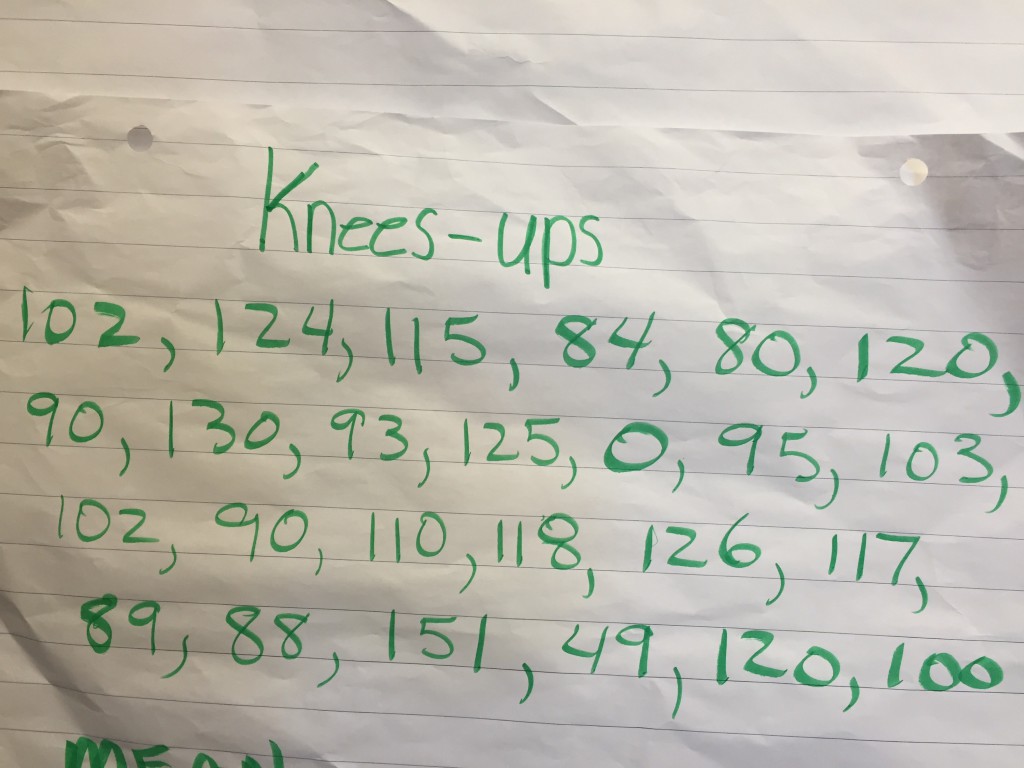 Knees-ups
102, 124, 115, 84, 80, 120,
90, 130, 93, 125, 0, 95, 103,
102, 90, 110, 118, 126, 117,
89, 88, 151, 49, 120, 100
MEAN